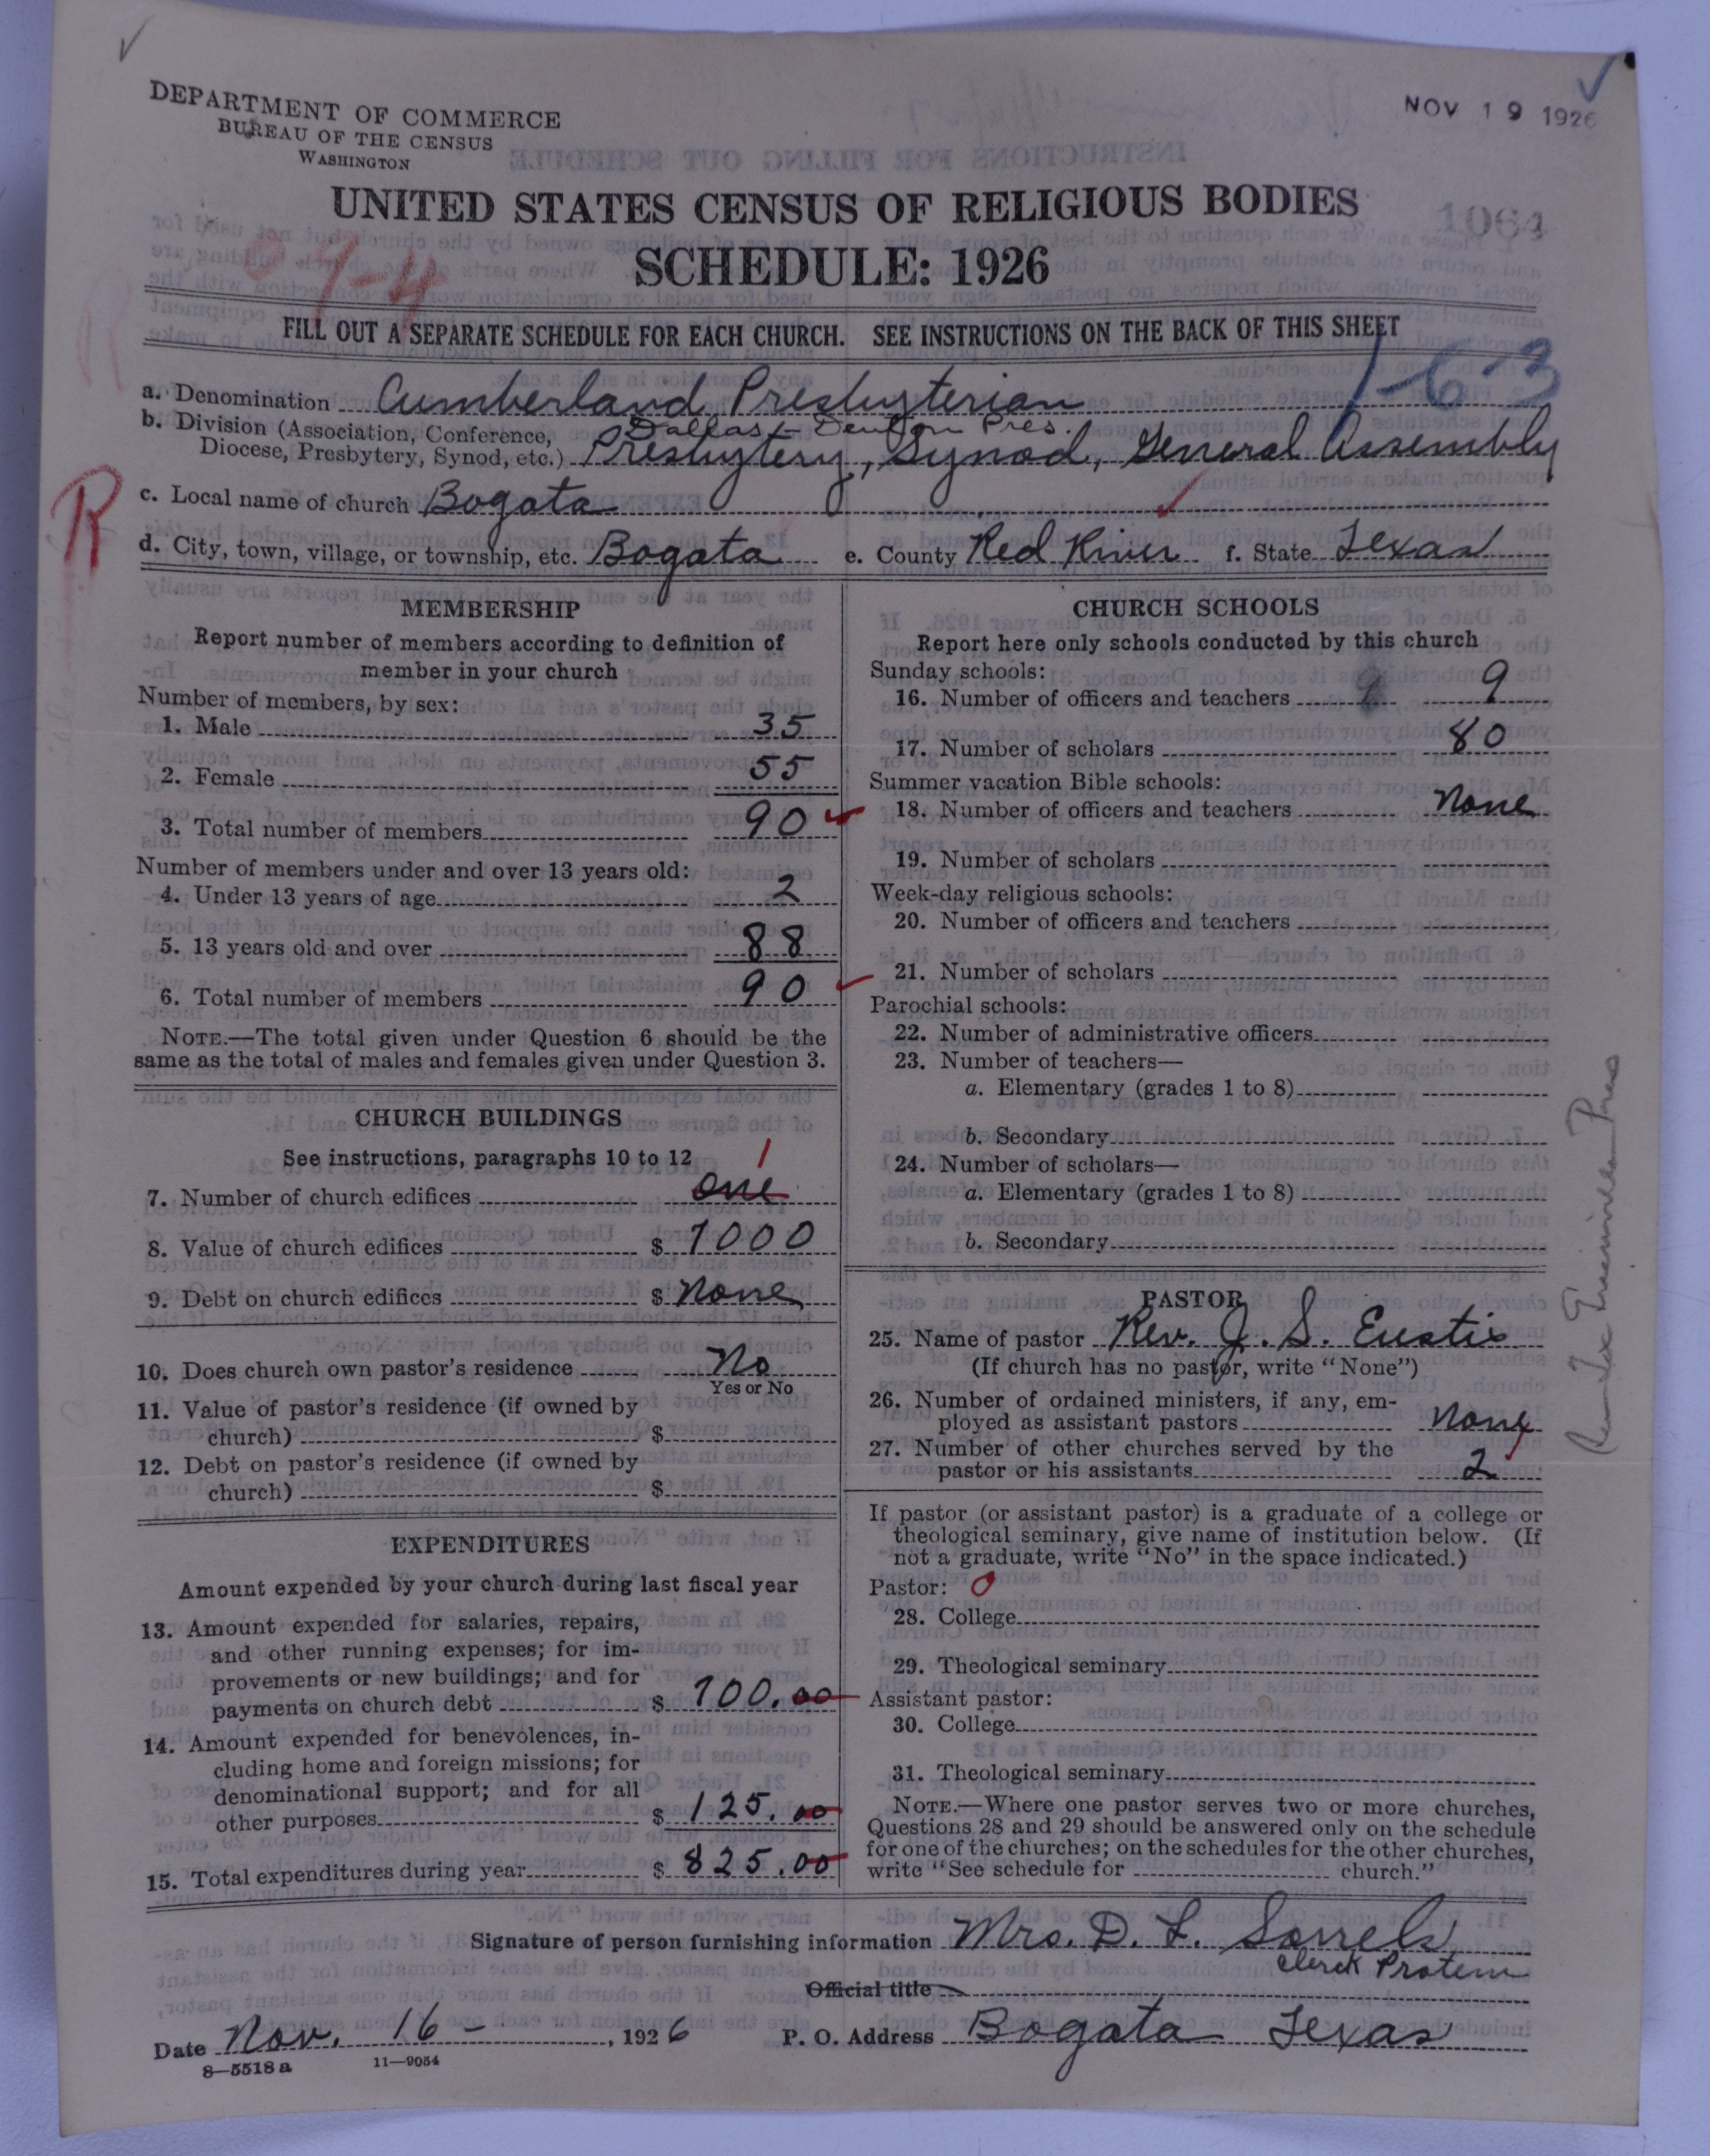 DEPARTMENT OF COMMERCE
BUREAU OF THE CENSUS
WASHINGTON
NOV 19 1926
UNITED STATES CENSUS OF RELIGIOUS BODIES
1064
SCHEDULE: 1926
FILL OUT A SEPARATE SCHEDULE FOR EACH CHURCH. SEE INSTRUCTIONS ON THE BACK OF THIS SHEET
1-6-3
a. Denomination Cumberland Presbyterian
Dallas-Denton Pres.
b. Division (Association, Conference, Diocese, Presbytery, Synod, etc.) Presbytery, Synod, General Assembly
R
c. Local name of church Bogata
d. City, town, village, or township, etc. Bogata e. County Red River f. State Texas
MEMBERSHIP
Report number of members according to definition of
member in your church
Number of members, by sex:
1. Male 35
2. Female 55
3. Total number of members 90
Number of members under and over 13 years old:
4. Under 13 years of age 2
5. 13 years old and over 88
6. Total number of members 90
NOTE.—The total given under Question 6 should be the
same as the total of males and females given under Question 3.
CHURCH BUILDINGS
See instructions, paragraphs 10 to 12
1
7. Number of church edifices one
8. Value of church edifices $ 1000
9. Debt on church edifices $ None
10. Does church own pastor's residence No
Yes or No
11. Value of pastor's residence (if owned by
church) $
12. Debt on pastor's residence (if owned by
church) $
EXPENDITURES
Amount expended by your church during last fiscal year
13. Amount expended for salaries, repairs,
and other running expenses; for im-
provements or new buildings; and for
payments on church debt $ 700.00
14. Amount expended for benevolences, in-
cluding home and foreign missions; for
denominational support; and for all
other purposes $ 125.00
15. Total expenditures during year $ 825.00
CHURCH SCHOOLS
Report here only schools conducted by this church
Sunday schools:
16. Number of officers and teachers 9
17. Number of scholars 80
Summer vacation Bible schools:
18. Number of officers and teachers None
19. Number of scholars
Week-day religious schools:
20. Number of officers and teachers
21. Number of scholars
Parochial schools:
22. Number of administrative officers
23. Number of teachers—
a. Elementary (grades 1 to 8)
b. Secondary
24. Number of scholars—
a. Elementary (grades 1 to 8)
b. Secondary
PASTOR
25. Name of pastor Rev. J. S. Eustis
(If church has no pastor, write "None")
26. Number of ordained ministers, if any, em-
ployed as assistant pastors None
27. Number of other churches served by the
pastor or his assistants 2
If pastor (or assistant pastor) is a graduate of a college or
theological seminary, give name of institution below. (If
not a graduate, write "No" in the space indicated.)
Pastor: 0
28. College
29. Theological seminary
Assistant pastor:
30. College
31. Theological seminary
NOTE.—Where one pastor serves two or more churches,
Questions 28 and 29 should be answered only on the schedule
for one of the churches; on the schedules for the other churches,
write "See schedule for church."
Signature of person furnishing information Mrs. D. L. Sorrels
Clerk Protem
Official title
Date Nov. 16 - , 1926 P. O. Address Bogata Texas
8—5518 a 11—9054